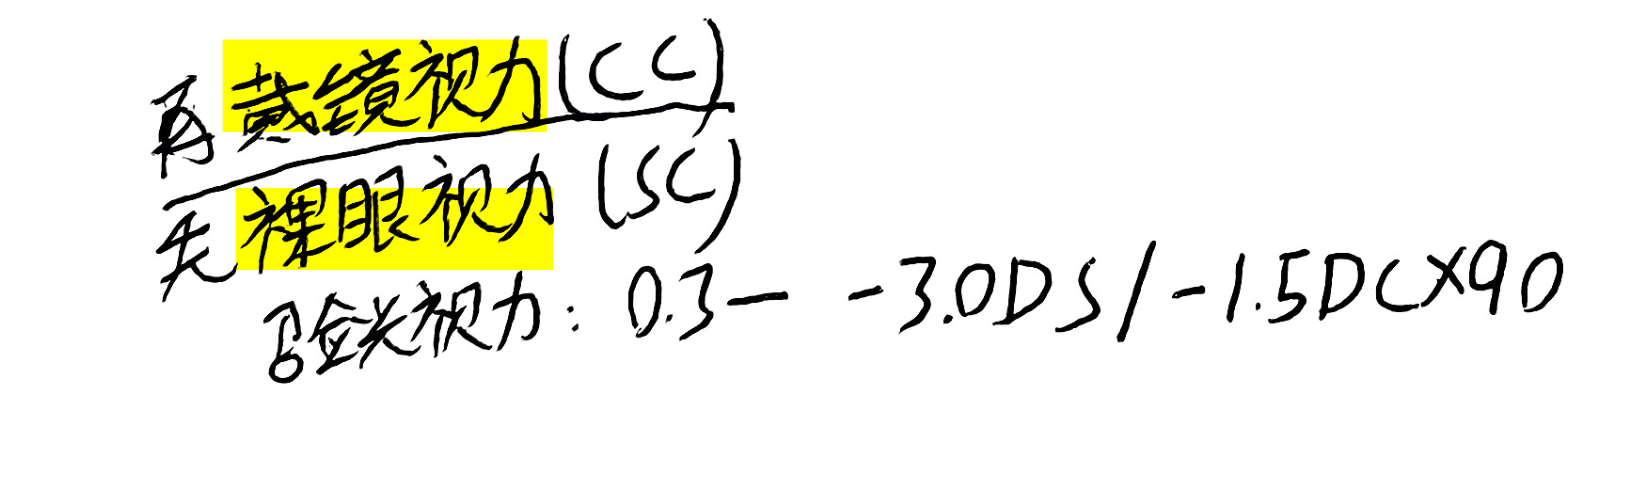 再戴镜视力(CC)
先裸眼视力(SC)
验光视力: 0.3— -3.0DS/-1.5DC×90